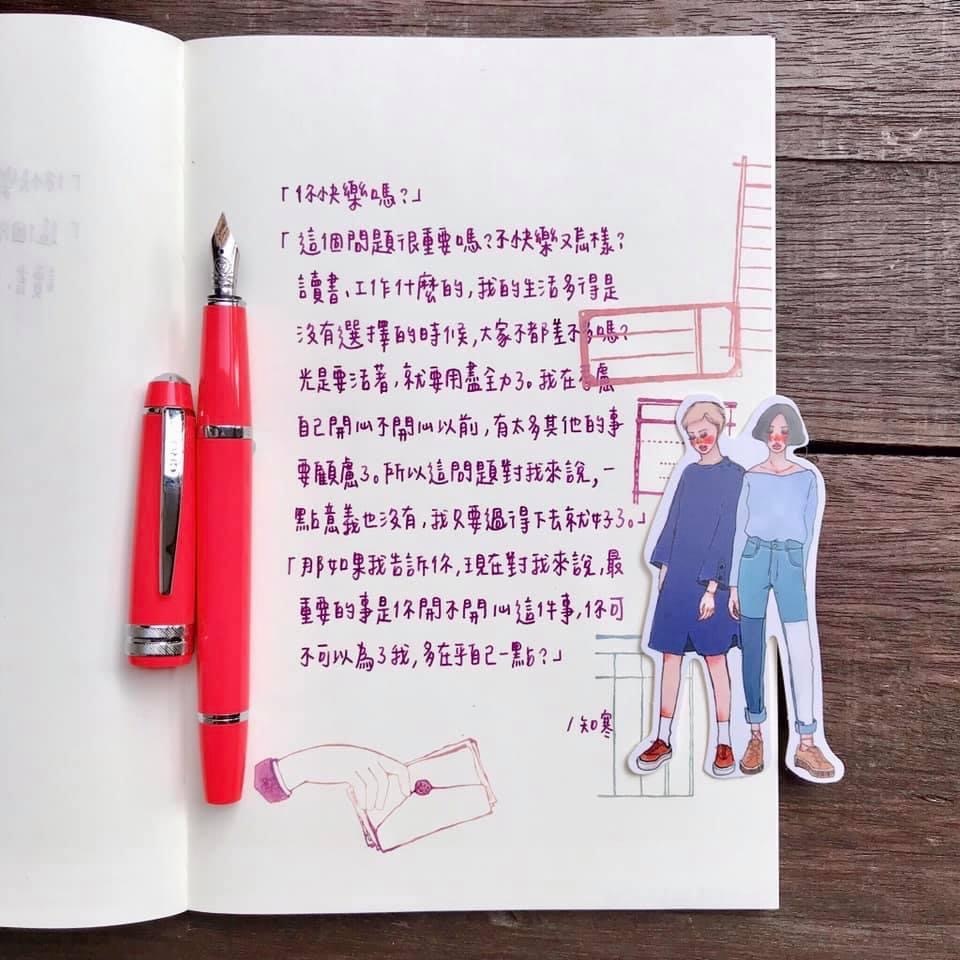 「你快樂嗎?」
「這個問題很重要嗎?不快樂又怎樣?
讀書、工作什麼的,我的生活多得是
沒有選擇的時候,大家不都差不多嗎?
光是要活著,就要用盡全力了。我在考慮
自己開心不開心以前,有太多其他的事
要顧慮了。所以這問題對我來說,一
點意義也沒有,我只要過得下去就好了。」
「那如果我告訴你,現在對我來說,最
重要的事是你開不開心這件事,你可
不可以為了我,多在乎自己一點?」
/知寒